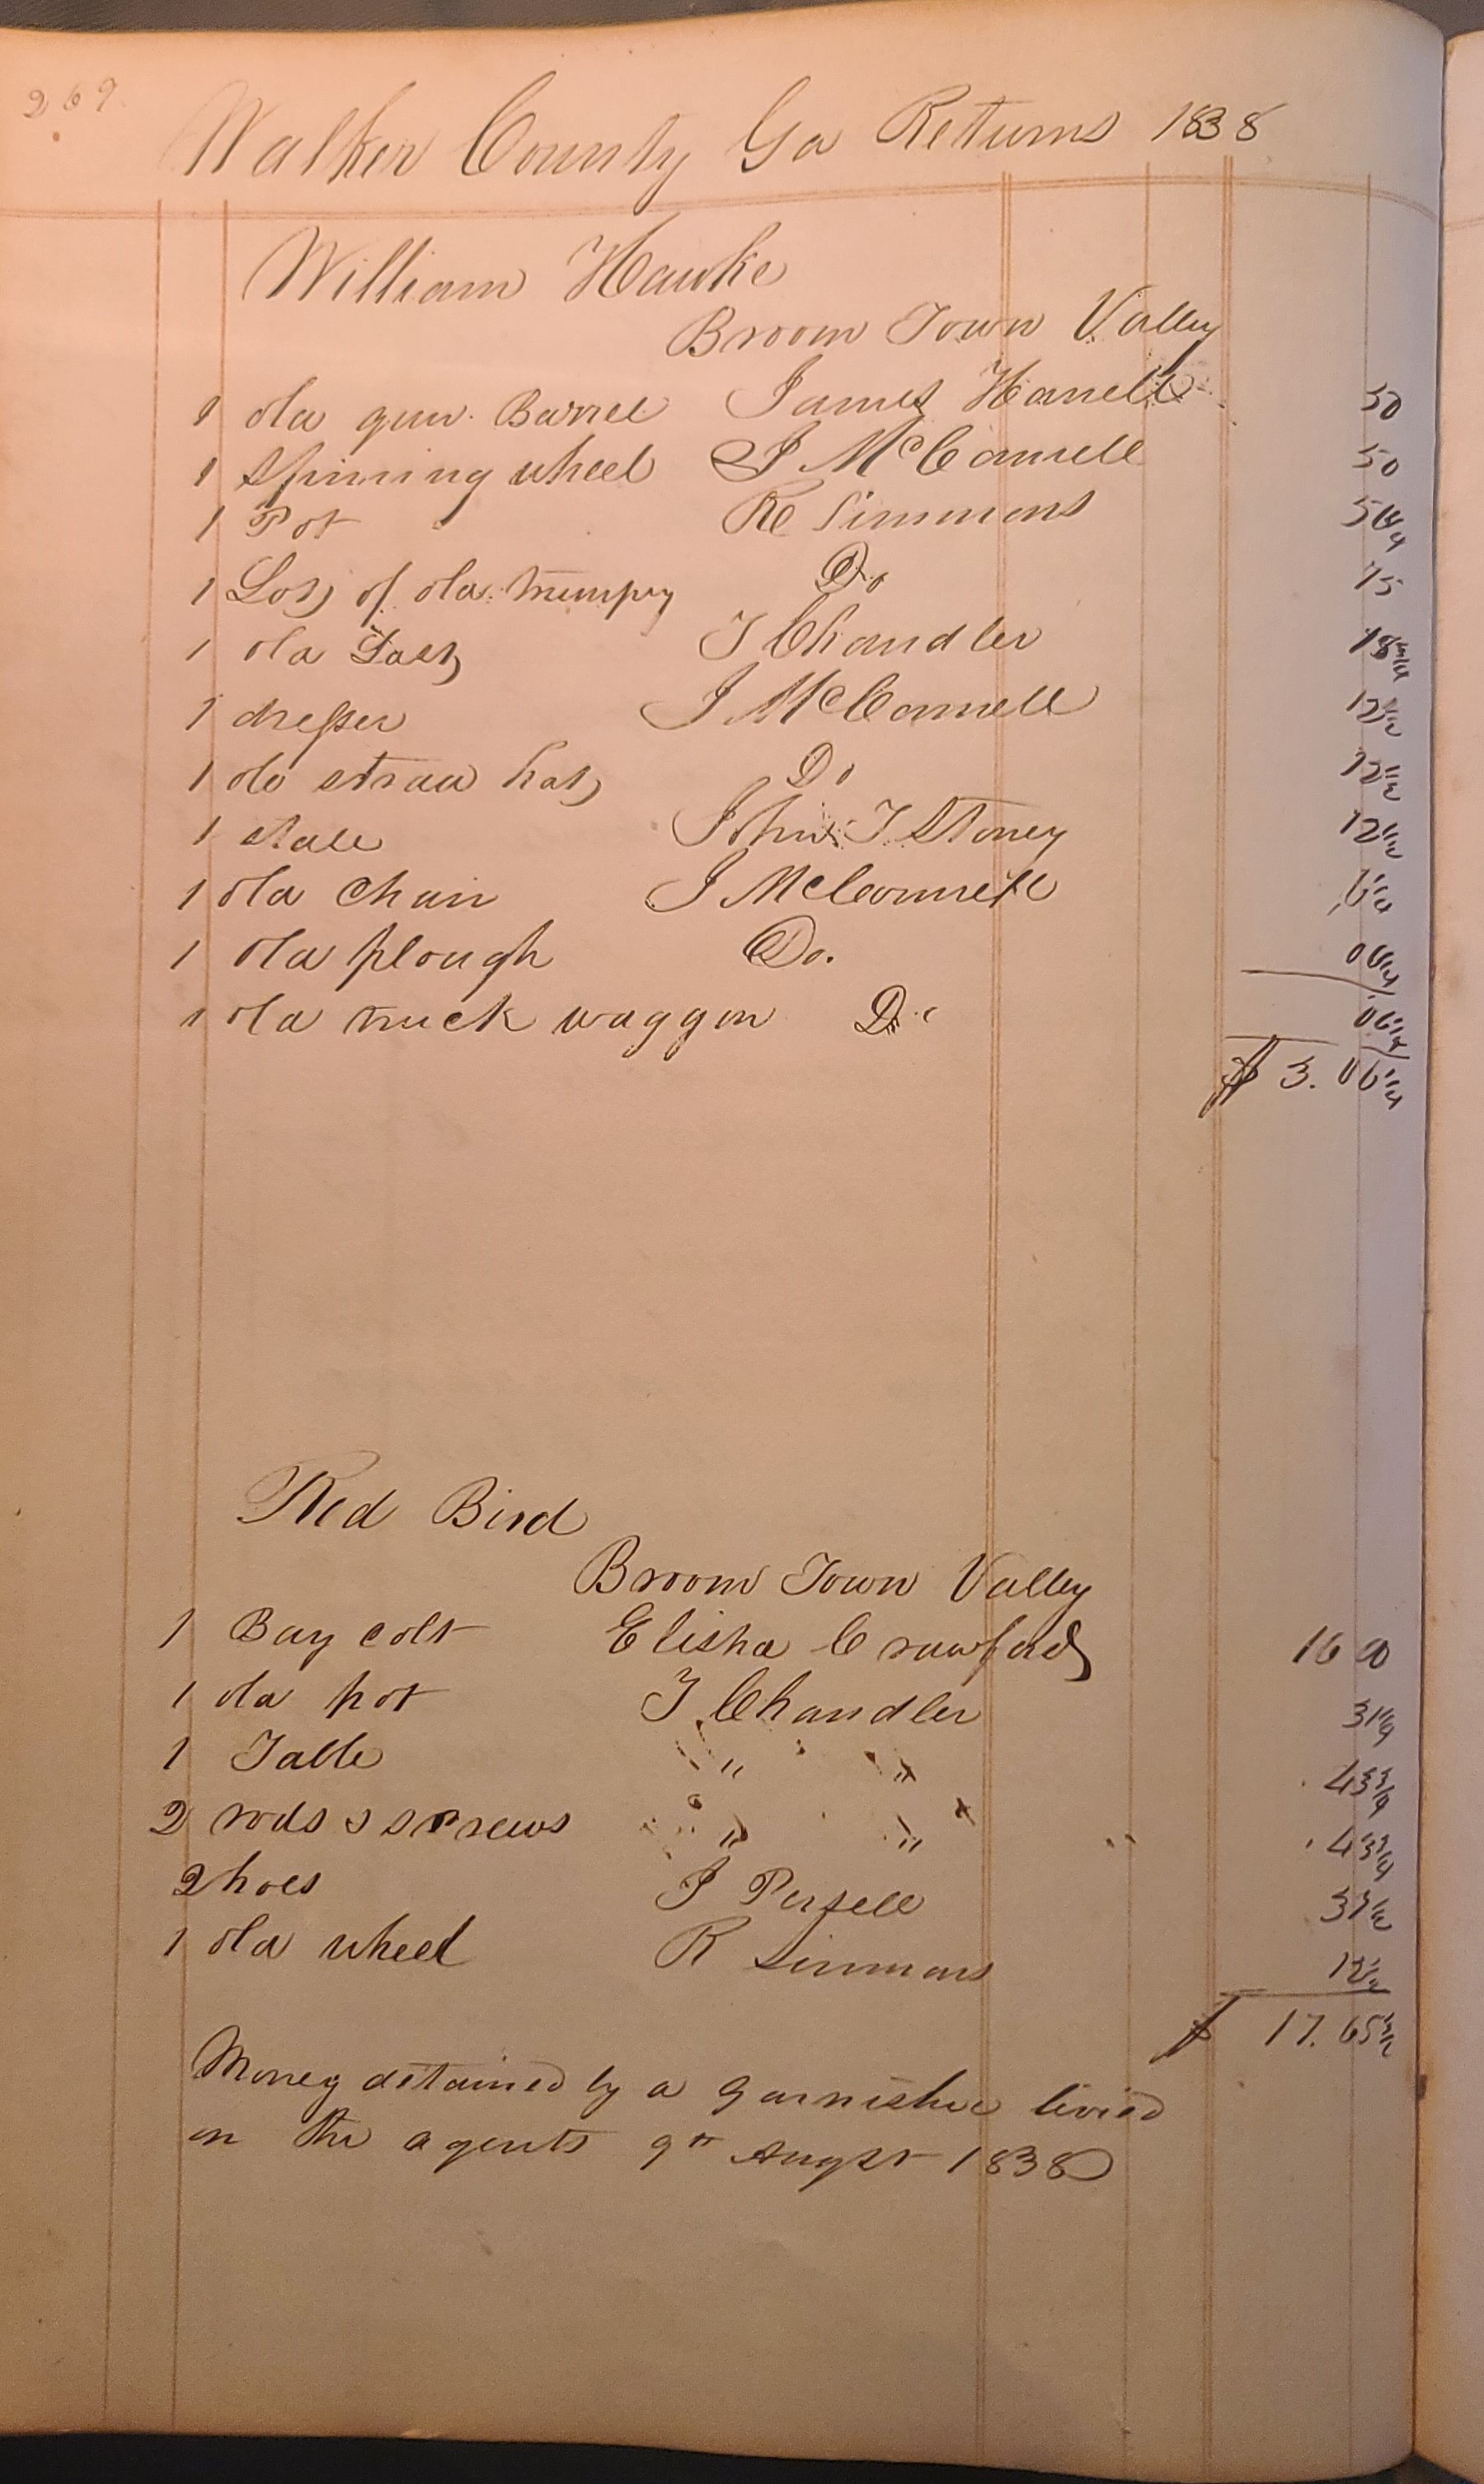 269
Walker County Ga Returns 1838
William Hawke
Broom Town Valley
1 old gun Barrel James Harrell 50
1 Spinning wheel J McConnell 50
1 Pot R Simmons 56 1/4
1 Lot of old trumpry Do 75
1 old T Chandler 18 3/4
1 dresser J McConnell 12 1/2
1 do straw hat Do 12 1/2
1 John T Stoney 12 1/2
1 old chair J McConnell 6 1/4
1 old plough Do. 06 1/4
1 old truck waggon Do 06 1/4
$ 3.06 1/4
Red Bird
Broom Town Valley
1 Bay colt Elisha Crawford 16 00
1 old pot T Chandler 31 1/4
1 Table " " 43 3/4
2 rods & screws " " 43 3/4
2 hoes J Pursell
1 old wheel R Simmons 12 1/2
$ 17.65
Money detained by a garnishee levied
on the agents 9th Augst 1838